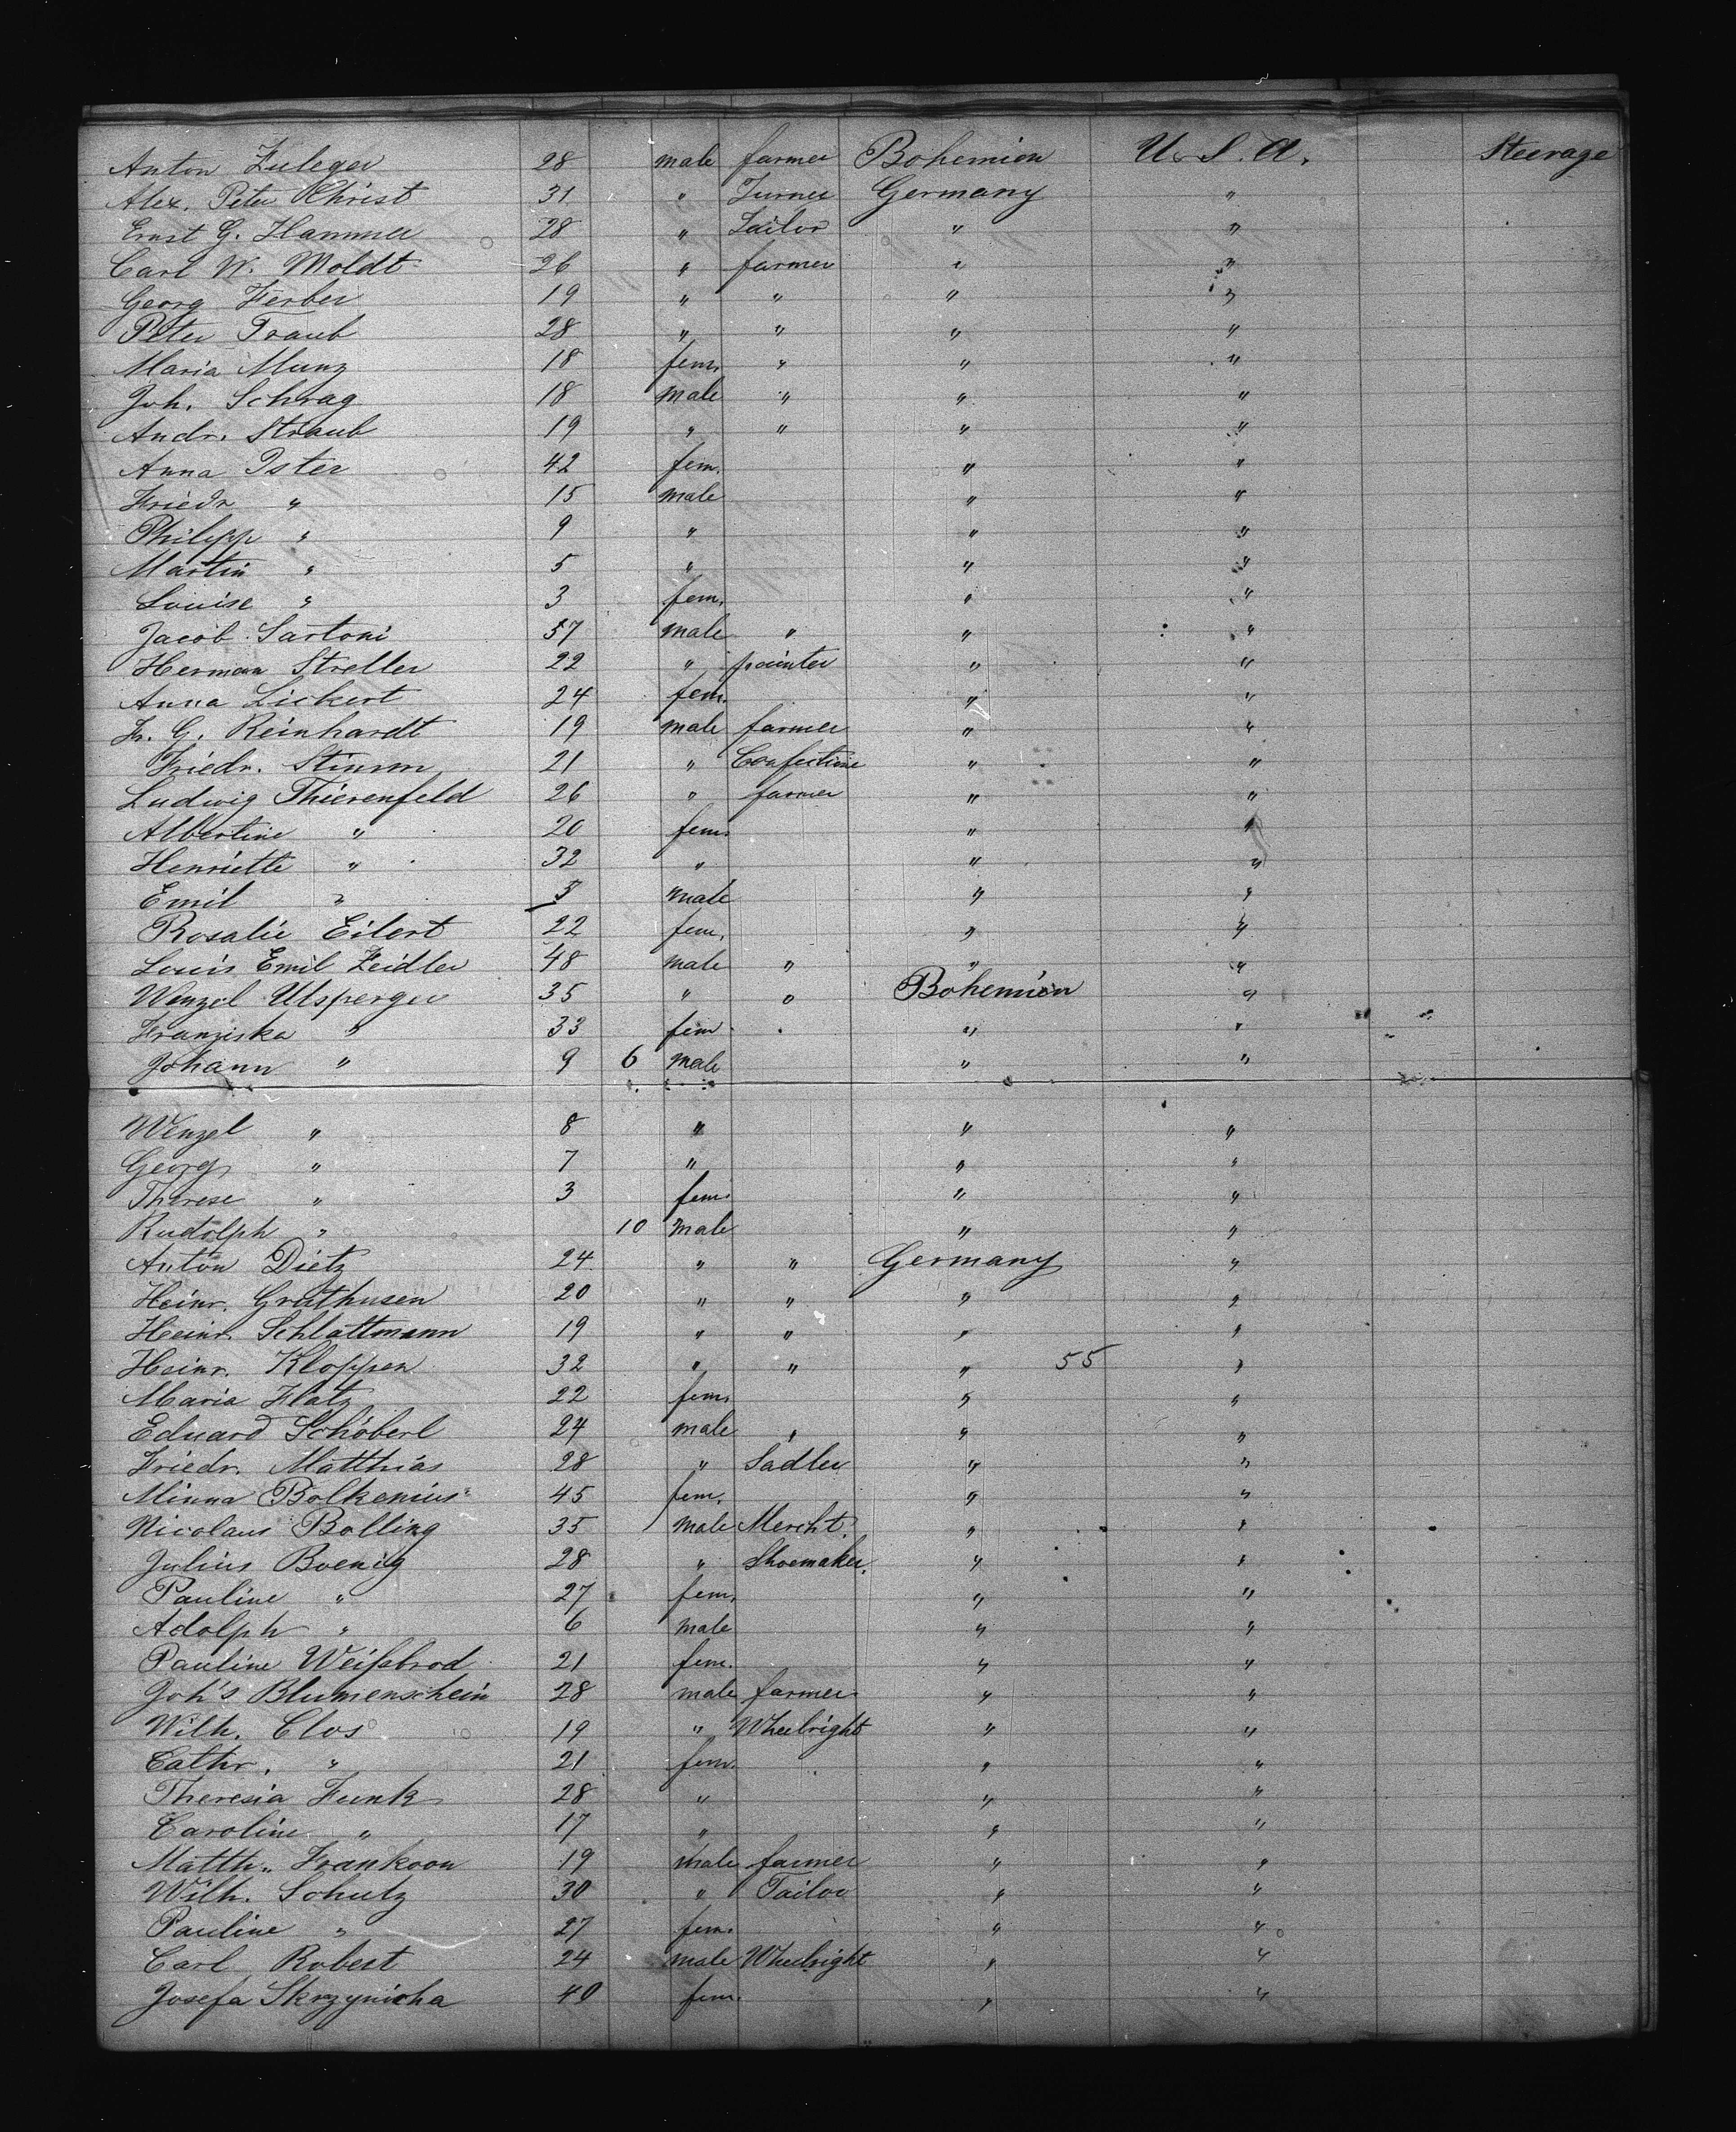 Anton Zuleger 28 male farmer Bohemien U. S. A. Steerage
Alex. Peter Christ 31 " Turner Germany "
Ernst G. Hammer 28 " Sailor " "
Carl W. Moldt 26 " farmer " "
Georg Ferber 19 " " " "
Peter Traub 28 " " " "
Maria Munz 18 fem. " " "
Joh. Schrag 18 male " " "
Andr. Straub 19 " " " "
Anna Pster 42 fem. " "
Friedr " 15 male " "
Philipp " 9 " " "
Martin " 5 " " "
Louise " 3 fem. " "
Jacob Sartoni 57 male " " "
Herman Streller 22 " painter " "
Anna Lickert 24 fem. " "
Fr. G. Reinhardt 19 male farmer " "
Friedr. 21 " " "
Ludwig Thierenfeld 26 " farmer " "
Albertine " 20 fem. " "
Henriette " 32 " " "
Emil " 5 male " "
Rosalie Eilert 22 fem. " "
Louis Emil Zeidler 48 male " " "
Wenzel Ulsperger 35 " " Bohemien "
Franziska " 33 fem " "
Johann " 9 6 male " "
Wenzel " 8 " " "
Georg " 7 " " "
Therese " 3 fem. " "
Rudolph " 10 male " "
Anton Dietz 24 " " Germany "
Heinr. Gruthusen 20 " " " "
Heinr. Schlattmann 19 " " " "
Heinr. Kloppen 32 " " " 55 "
Maria Flatz 22 fem. " "
Eduard Schöberl 24 male " " "
Friedr. Matthias 28 " Sadler " "
Minna Bolkenius 45 fem. " "
Nicolaus Bolling 35 male Mercht. " "
Julius Boenig 28 " Shoemaker " "
Pauline " 27 fem. " "
Adolph " 6 male " "
Pauline Weißbrod 21 fem. " "
Joh's Blumenschein 28 male farmer " "
Wilh. Clos 19 " Wheelright " "
Cathr. " 21 fem. " "
Theresia Funk 28 " " "
Caroline " 17 " " "
Matth. 19 male farmer " "
Wilh. Schutz 30 " Tailor " "
Pauline " 27 fem. " "
Carl Robert 24 male Wheelright " "
Josefa 40 fem. " "